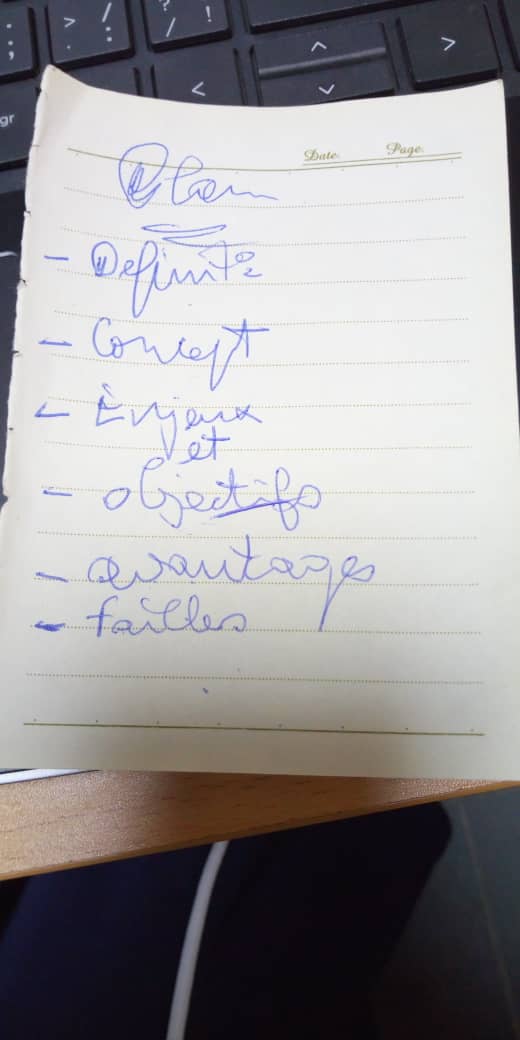 Date. Page.
Plan
- Definit°
- Concept
- Enjeux
et
- objectifs
- avantages
- failles
> ? /
; / !
: 
gr
< ^ >